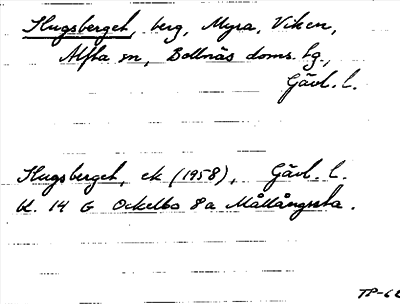 Hugsberget, berg, Myra, Viken,
Alfta sn, Bollnäs doms. hg.,
Gävl. l.
Hugsberget, ek (1958), Gävl. l.
K. 14 G Ockelbo 8a Mållångssta.
TP-62